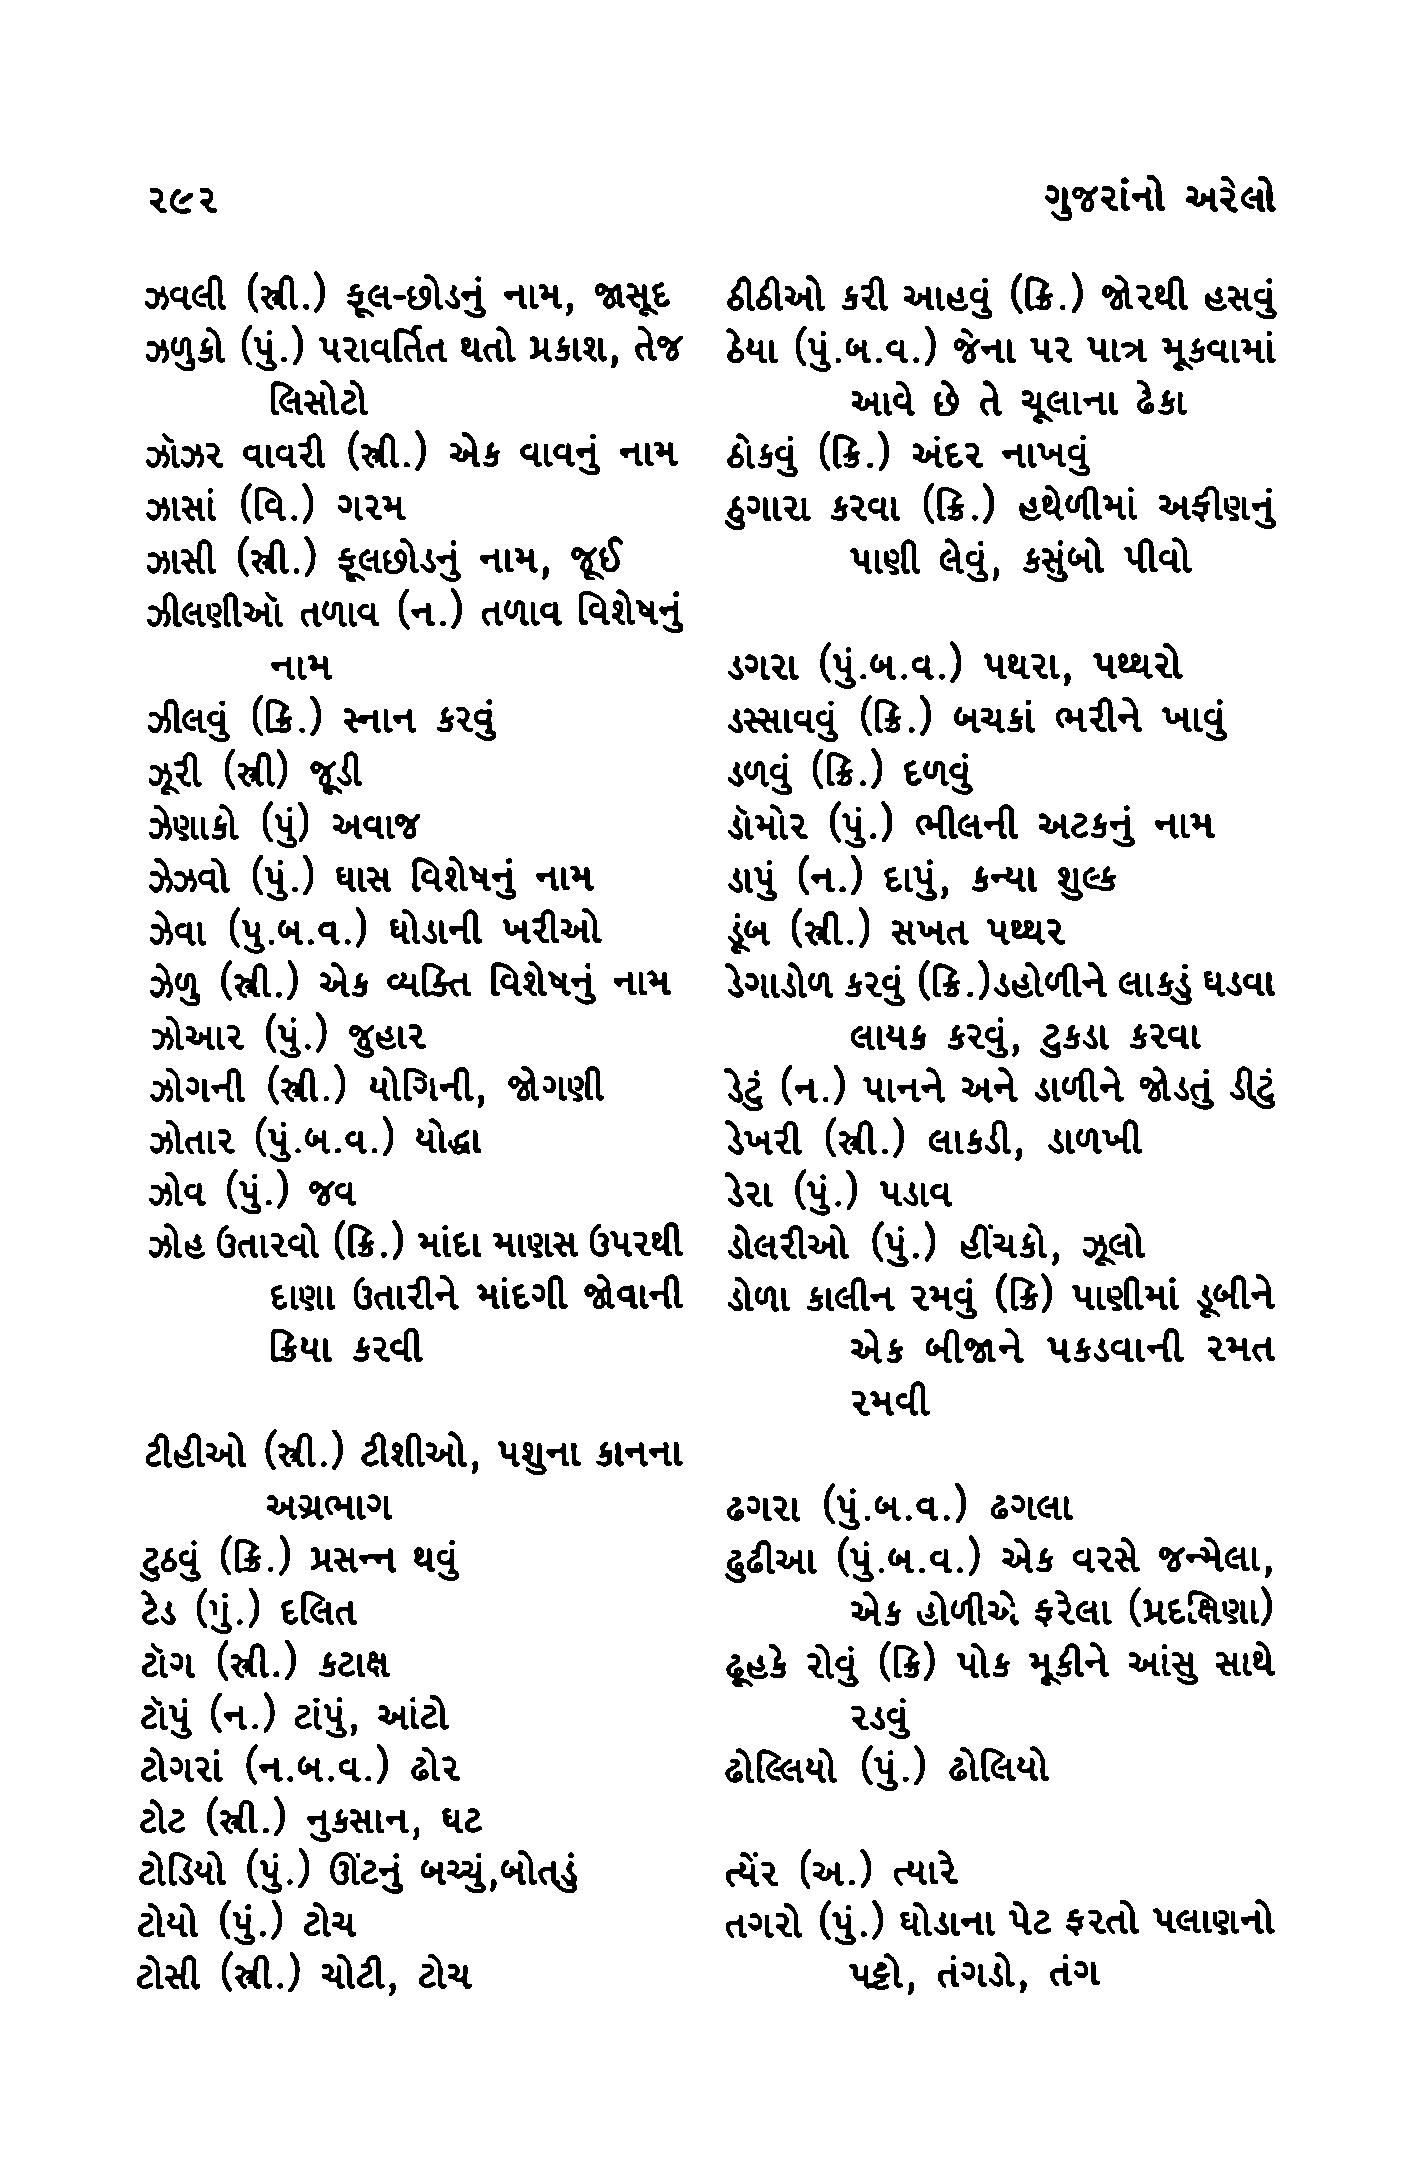 ૨૯૨
ગુજરાંનો અરેલો
ઝવલી (સ્ત્રી.) ફૂલ-છોડનું નામ, જાસૂદ
ઝળુકો (પું.) પરાવર્તિત થતો પ્રકાશ, તેજ
લિસોટો
ઝૉઝર વાવરી (સ્ત્રી.) એક વાવનું નામ
ઝાસાં (વિ.) ગરમ
ઝાસી (સ્ત્રી.) ફૂલછોડનું નામ, જૂઈ
ઝીલણીઑ તળાવ (ન.) તળાવ વિશેષનું
નામ
ઝીલવું (ક્રિ.) સ્નાન કરવું
ઝૂરી (સ્ત્રી) જૂડી
ઝેણાકો (પું) અવાજ
ઝેઝવો (પું.) ઘાસ વિશેષનું નામ
ઝેવા (પુ.બ.વ.) ઘોડાની ખરીઓ
ઝેળુ (સ્ત્રી.) એક વ્યક્તિ વિશેષનું નામ
ઝોઆર (પું.) જુહાર
ઝોગની (સ્ત્રી.) યોગિની, જોગણી
ઝોતાર (પું.બ.વ.) યોદ્ધા
ઝોવ (પું.) જવ
ઝોહ ઉતારવો (ક્રિ.) માંદા માણસ ઉપરથી
દાણા ઉતારીને માંદગી જોવાની
ક્રિયા કરવી
ટીહીઓ (સ્ત્રી.) ટીશીઓ, પશુના કાનના
અગ્રભાગ
ટુઠવું (ક્રિ.) પ્રસન્ન થવું
ટેડ (પું.) દલિત
ટૉગ (સ્ત્રી.) કટાક્ષ
ટૉપું (ન.) ટાંપું, આંટો
ટોગરાં (ન.બ.વ.) ઢોર
ટોટ (સ્ત્રી.) નુકસાન, ઘટ
ટોડિયો (પું.) ઊંટનું બચ્ચું,બોતડું
ટોયો (પું.) ટોચ
ટોસી (સ્ત્રી.) ચોટી, ટોચ
ઠીઠીઓ કરી આહવું (ક્રિ.) જોરથી હસવું
ઠેયા (પું.બ.વ.) જેના પર પાત્ર મૂકવામાં
આવે છે તે ચૂલાના ઢેકા
ઠોકવું (ક્રિ.) અંદર નાખવું
ઠુગારા કરવા (ક્રિ.) હથેળીમાં અફીણનું
પાણી લેવું, કસુંબો પીવો
ડગરા (પું.બ.વ.) પથરા, પથ્થરો
ડસ્સાવવું (ક્રિ.) બચકાં ભરીને ખાવું
ડળવું (ક્રિ.) દળવું
ડૉમોર (પું.) ભીલની અટકનું નામ
ડાપું (ન.) દાપું, કન્યા શુલ્ક
ડૂંબ (સ્ત્રી.) સખત પથ્થર
ડેગાડોળ કરવું (ક્રિ.)ડહોળીને લાકડું ઘડવા
લાયક કરવું, ટુકડા કરવા
ડેટું (ન.) પાનને અને ડાળીને જોડતું ડીટું
ડેખરી (સ્ત્રી.) લાકડી, ડાળખી
ડેરા (પું.) પડાવ
ડોલરીઓ (પું.) હીંચકો, ઝૂલો
ડોળા કાલીન રમવું (ક્રિ) પાણીમાં ડૂબીને
એક બીજાને પકડવાની રમત
રમવી
ઢગરા (પું.બ.વ.) ઢગલા
ઢુઢીઆ (પું.બ.વ.) એક વરસે જન્મેલા,
એક હોળીએ ફરેલા (પ્રદક્ષિણા)
ઢૂહકે રોવું (ક્રિ) પોક મૂકીને આંસુ સાથે
રડવું
ઢોલ્લિયો (પું.) ઢોલિયો
ત્યેંર (અ.) ત્યારે
તગરો (પું.) ઘોડાના પેટ ફરતો પલાણનો
પટ્ટો, તંગડો, તંગ